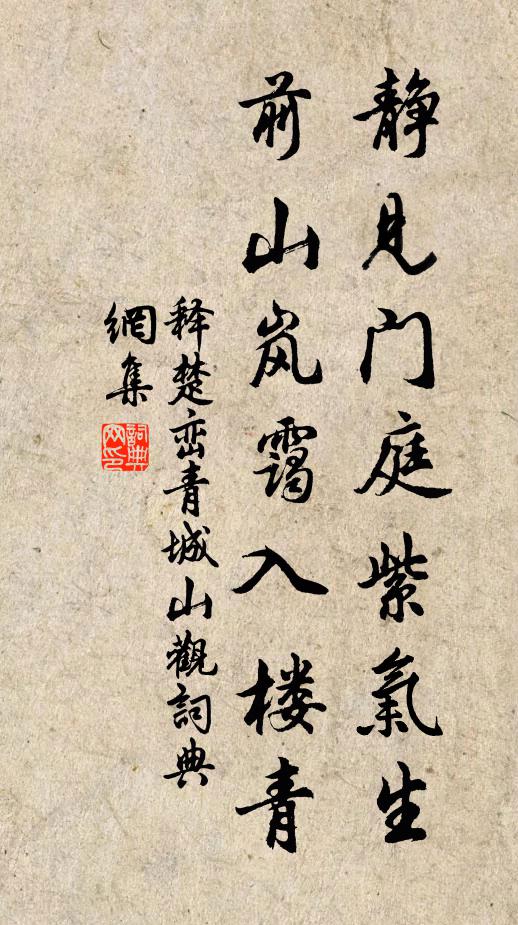 静見門庭紫氣生
前山岚靄入楼青
释楚峦青城山觀詞典
網集
詞典网印